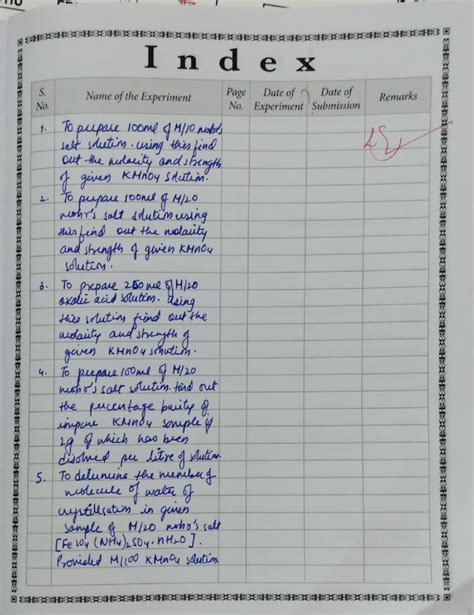 Index
S. No. Name of the Experiment Page No. Date of Experiment Date of Submission Remarks
1. To prepare 100ml of M/10 mohr's
salt solution. using this find
out the molarity and strength
of given KMnO4 solution.
2. To prepare 100ml of M/20
mohr's salt solution using
this find out the molarity
and strength of given KMnO4
solution.
3. To prepare 250 ml of M/20
oxalic acid solution. Using
this solution find out the
molarity and strength of
given KMnO4 solution.
4. To prepare 100ml of M/20
mohr's salt solution. find out
the percentage purity of
impure KMnO4 sample if
2g of which has been
disolved per litre of solution.
5. To determine the number of
molecule of water of
crystillisation in given
sample of M/20 mohr's salt
[FeSO4 (NH4)2SO4. nH2O].
Provided M/100 KMnO4 solution